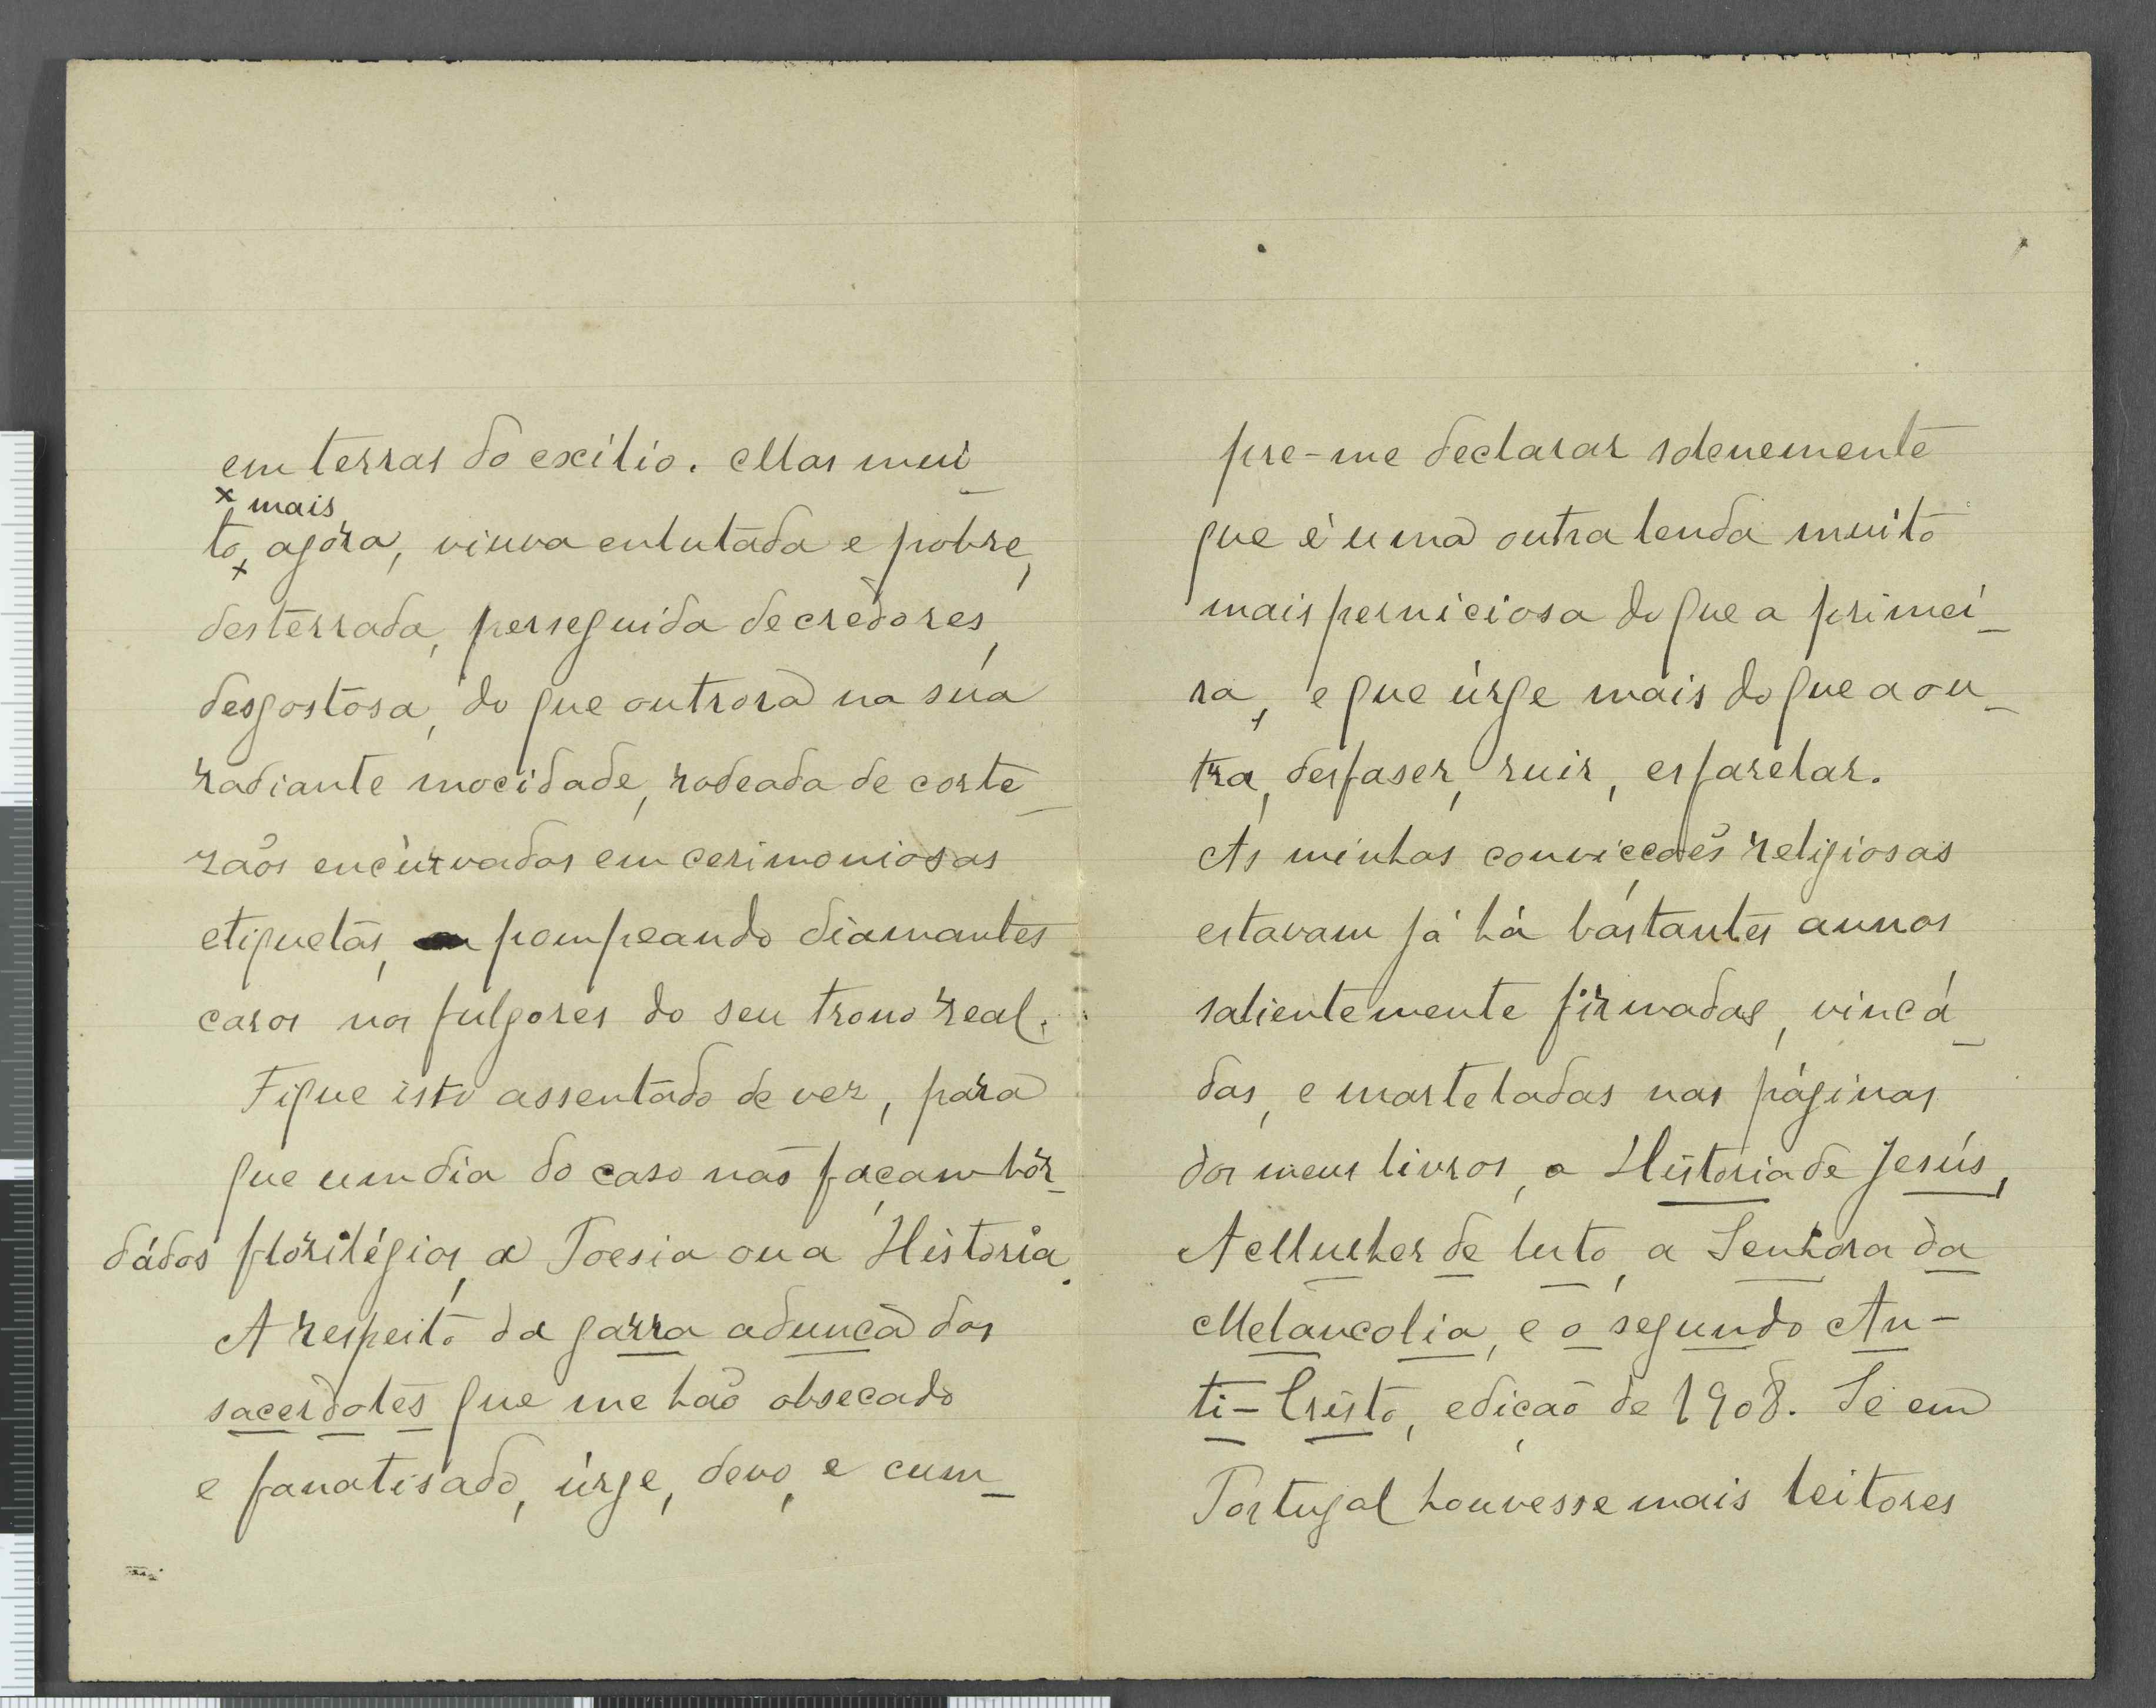 em terras do exílio. Mas mui_
x mais
to, agóra, viuva enlutada e pobre,
x
desterrada, perseguida de crèdores,
desgostosa, do que outrora na súa
radiante mocidade, rodeada de corte_
zãos encùrvados em cerimoniosas
etiquetas, pompeando diamantes
caros nos fulgores do seu trono real.
Fique isto assentado de vez, para
que um dia do caso não façam bór_
dádos florilégios, a Poesia ou a Historia.
A respeito da garra adunca dos
sacerdotes que me hão obsecado
e fanatisado, úrge, devo, e cum_
pre-me declarar solenemente
que é uma outra lenda muito
mais perniciosa do que a primei_
ra, e que úrge mais do que a ou_
tra, desfaser, ruir, esfarelar.
As minhas convicções religiosas
estavam já há bastantes annos
salientemente firmadas, vincá_
das, e marteladas nas páginas
dos meus livros, a Historia de Jesús,
A Mulher de luto, a Senhora da
Melancolia, e o segundo An-
ti-Cristo, edição de 1908. Se em
Portugal houvesse mais leitores